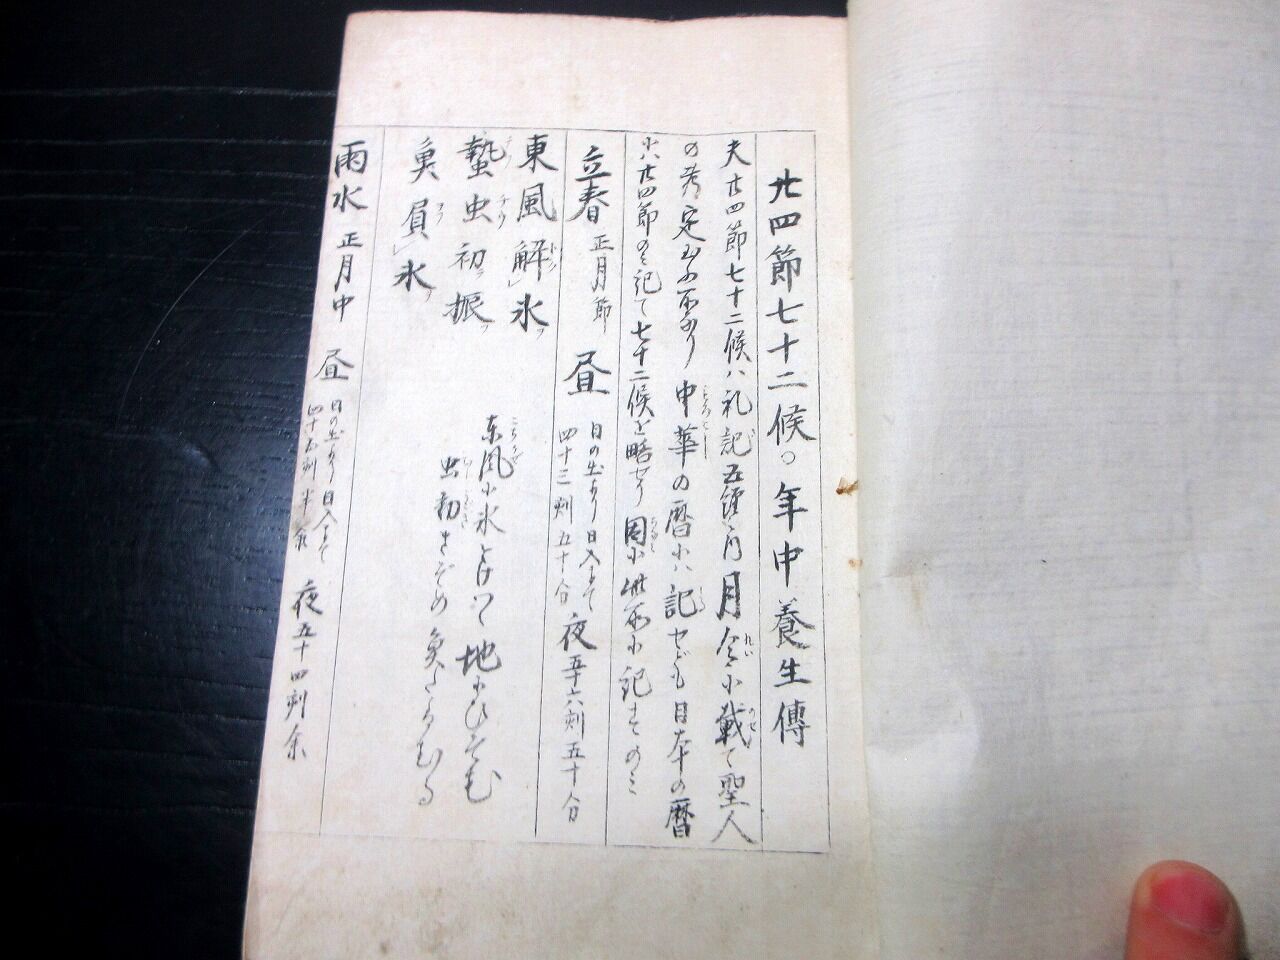 廿四節七十二候○年中養生傳
夫廿四節七十二候ハ礼記五経ノ内月令に載て聖人
の考定め玉ふ所なり中華の暦にハ記せども日本の暦
にハ廿四節のミ記て七十二候を略せり因に此所に記すのミ
立春 正月節 昼 日の出より日入まて 四十三刻五十分 夜 五十六刻五十分
東風解氷
蟄虫初振
魚負氷
東風に氷とけつゝ地にひそむ
虫動きぞめ魚
雨水 正月中 昼 日の出より日入まて 四十五刻半余 夜五十四刻余